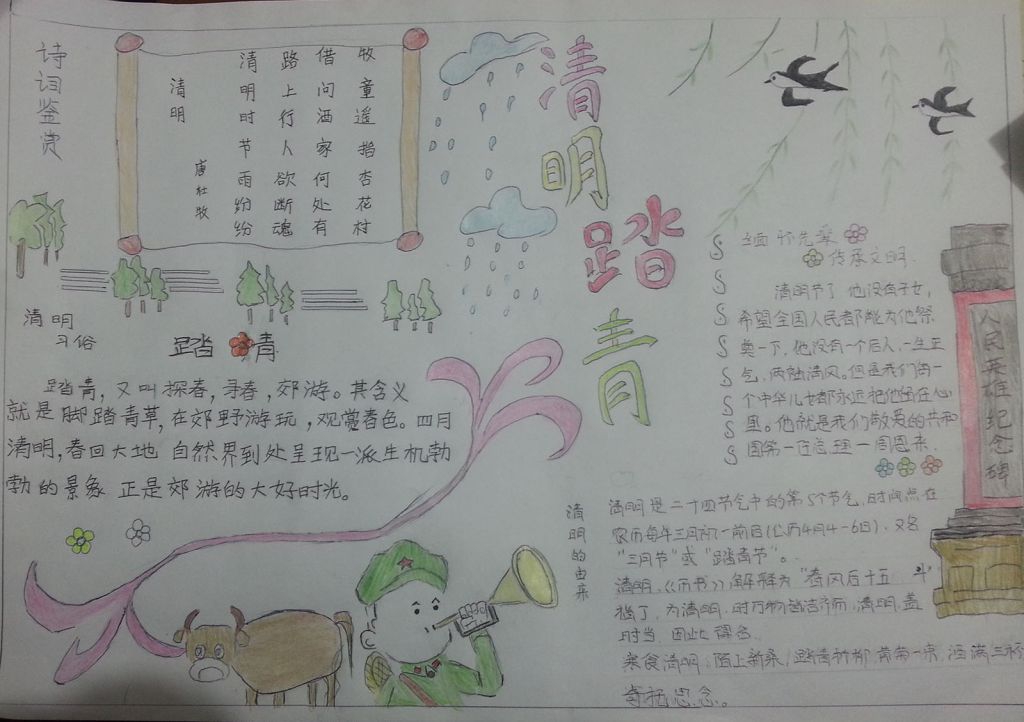 诗词鉴赏
清明
唐杜牧
清明时节雨纷纷
路上行人欲断魂
借问酒家何处有
牧童遥指杏花村
清明踏青
清明
习俗
踏青
踏青，又叫探春，寻春，郊游。其含义
就是脚踏青草，在郊野游玩，观赏春色。四月
清明，春回大地 自然界到处呈现一派生机勃
勃的景象 正是郊游的大好时光。
缅怀先辈
传承文明
清明节了 他没有子女，
希望全国人民都能为他祭
奠一下，他没有一个后人，一生正
气，两袖清风。但是我们每一
个中华儿女都永远把他留在心
里。他就是我们敬爱的共和
国第一任总理—周恩来.
人民英雄纪念碑
清明的由来
清明是二十四节气中的第5个节气，时间点在
农历每年三月初一前后(公历4月4-6日)，又名
“三月节”或“踏青节”。
清明，《历书》：解释为“春风后十五 斗
指丁，为清明，时万物皆洁齐而清明，盖
时当 因此得名.
寒食清明：陌上新桑，踏青折柳
寄托忠念。